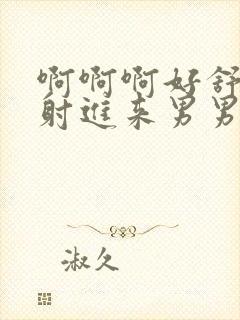 啊啊啊好舒
射进来男男
淑久